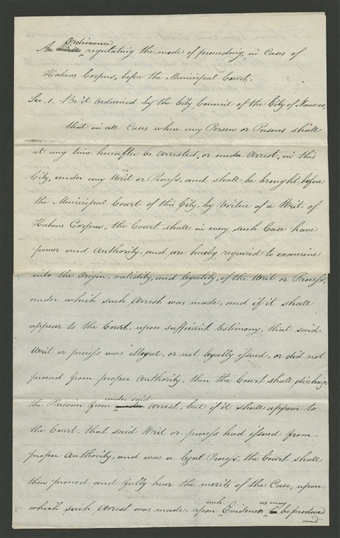 Ordinance
An regulating the mode of proceeding, in Cases of
Habeas Corpus, before the Municipal Court.
Sec. 1. Be it Ordained by the City Council of the City of Nauvoo,
that in all Cases where any Person or Persons shall
at any time hereafter be Arrested, or under Arrest, in this
City, under any Writ or Process, and shall be brought before
the Municipal Court of this City, by Virtue of a Writ of
Habeas Corpus, the Court shall in every such Case have
power and Authority, and are hereby required to examine
into the Origin, validity, and legality, of the Writ or Process,
under which such Arrest was made, and if it shall
appear to the Court, upon sufficient testimony, that said
Writ or process was illegal, or not legally issued, or did not
proceed from proper Authority, then the Court shall discharge
under said
the Prisoner from Arrest, but if it shall appear to
the Court, that said Writ or process had issued from
proper Authority, and was a legal Process, the Court shall
then proceed and fully hear the merits of the Case, upon
such as may
which such Arrest was made, upon Evidence be produced
and